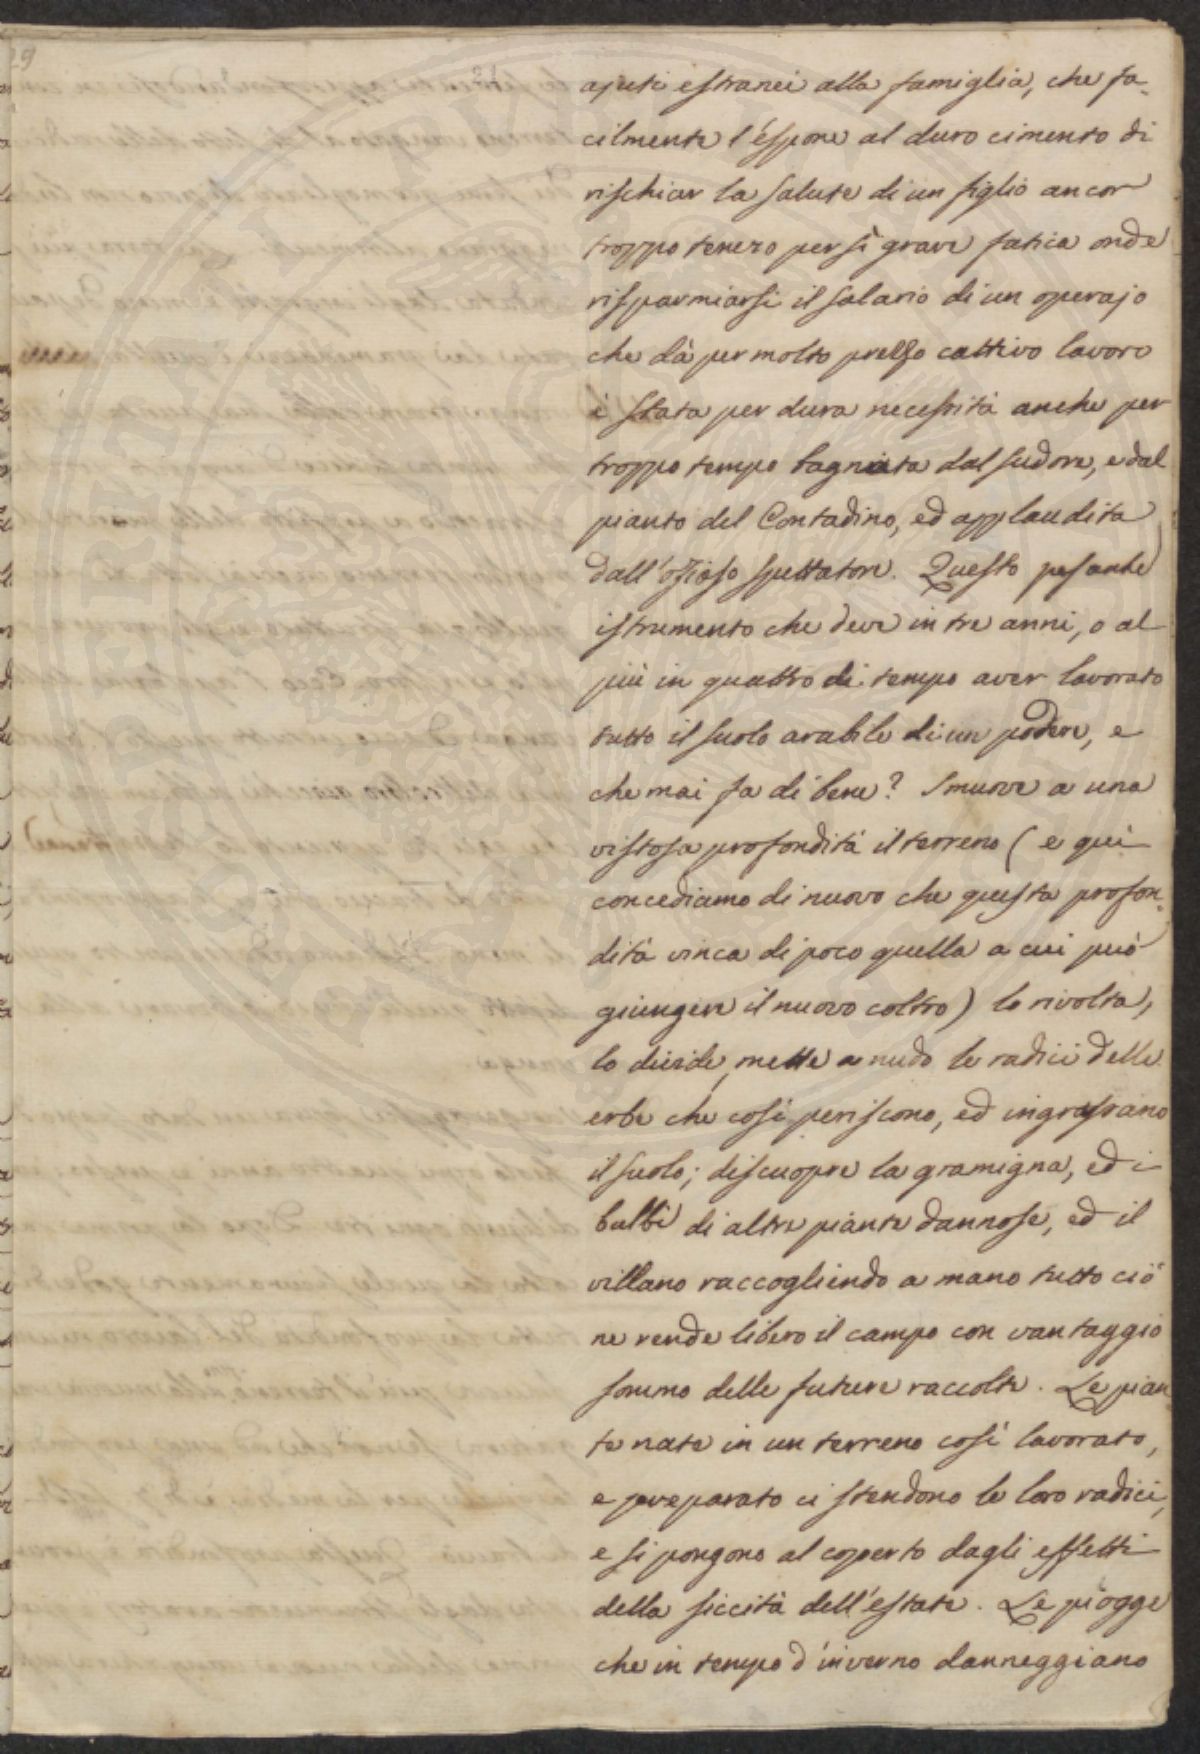 ajuti estranei alla famiglia, che fa-
cilmente l'espone al duro cimento di
rischiar la salute di un figlio ancor
troppo tenero per sì grave fatica onde
risparmiarsi il salario di un operajo
che dà per molto prezzo cattivo lavoro
è stata per dura necessità anche per
troppo tempo bagnata dal sudore, e dal
pianto del Contadino, ed applaudita
dall'ozioso spettatore. Questo pesante
istrumento che deve in tre anni, o al
più in quattro di tempo aver lavorato
tutto il suolo arabile di un podere, e
che mai fa di bene? Smuove a una
vistosa profondità il terreno (e quì
concediamo di nuovo che questa profon-
dità vinca di poco quella a cui può
giungere il nuovo coltro) lo rivolta,
lo divide, mette a nudo le radici delle
erbe che così periscono, ed ingrassano
il suolo; discuopre la gramigna, ed i
bulbi di altre piante dannose, ed il
villano raccogliendo a mano tutto ciò
ne rende libero il campo con vantaggio
sommo delle future raccolte. Le pian
te nate in un terreno così lavorato,
e preparato ci stendono le loro radici,
e si pongono al coperto dagli effetti
della siccità dell'estate. Le piogge
che in tempo d'inverno danneggiano